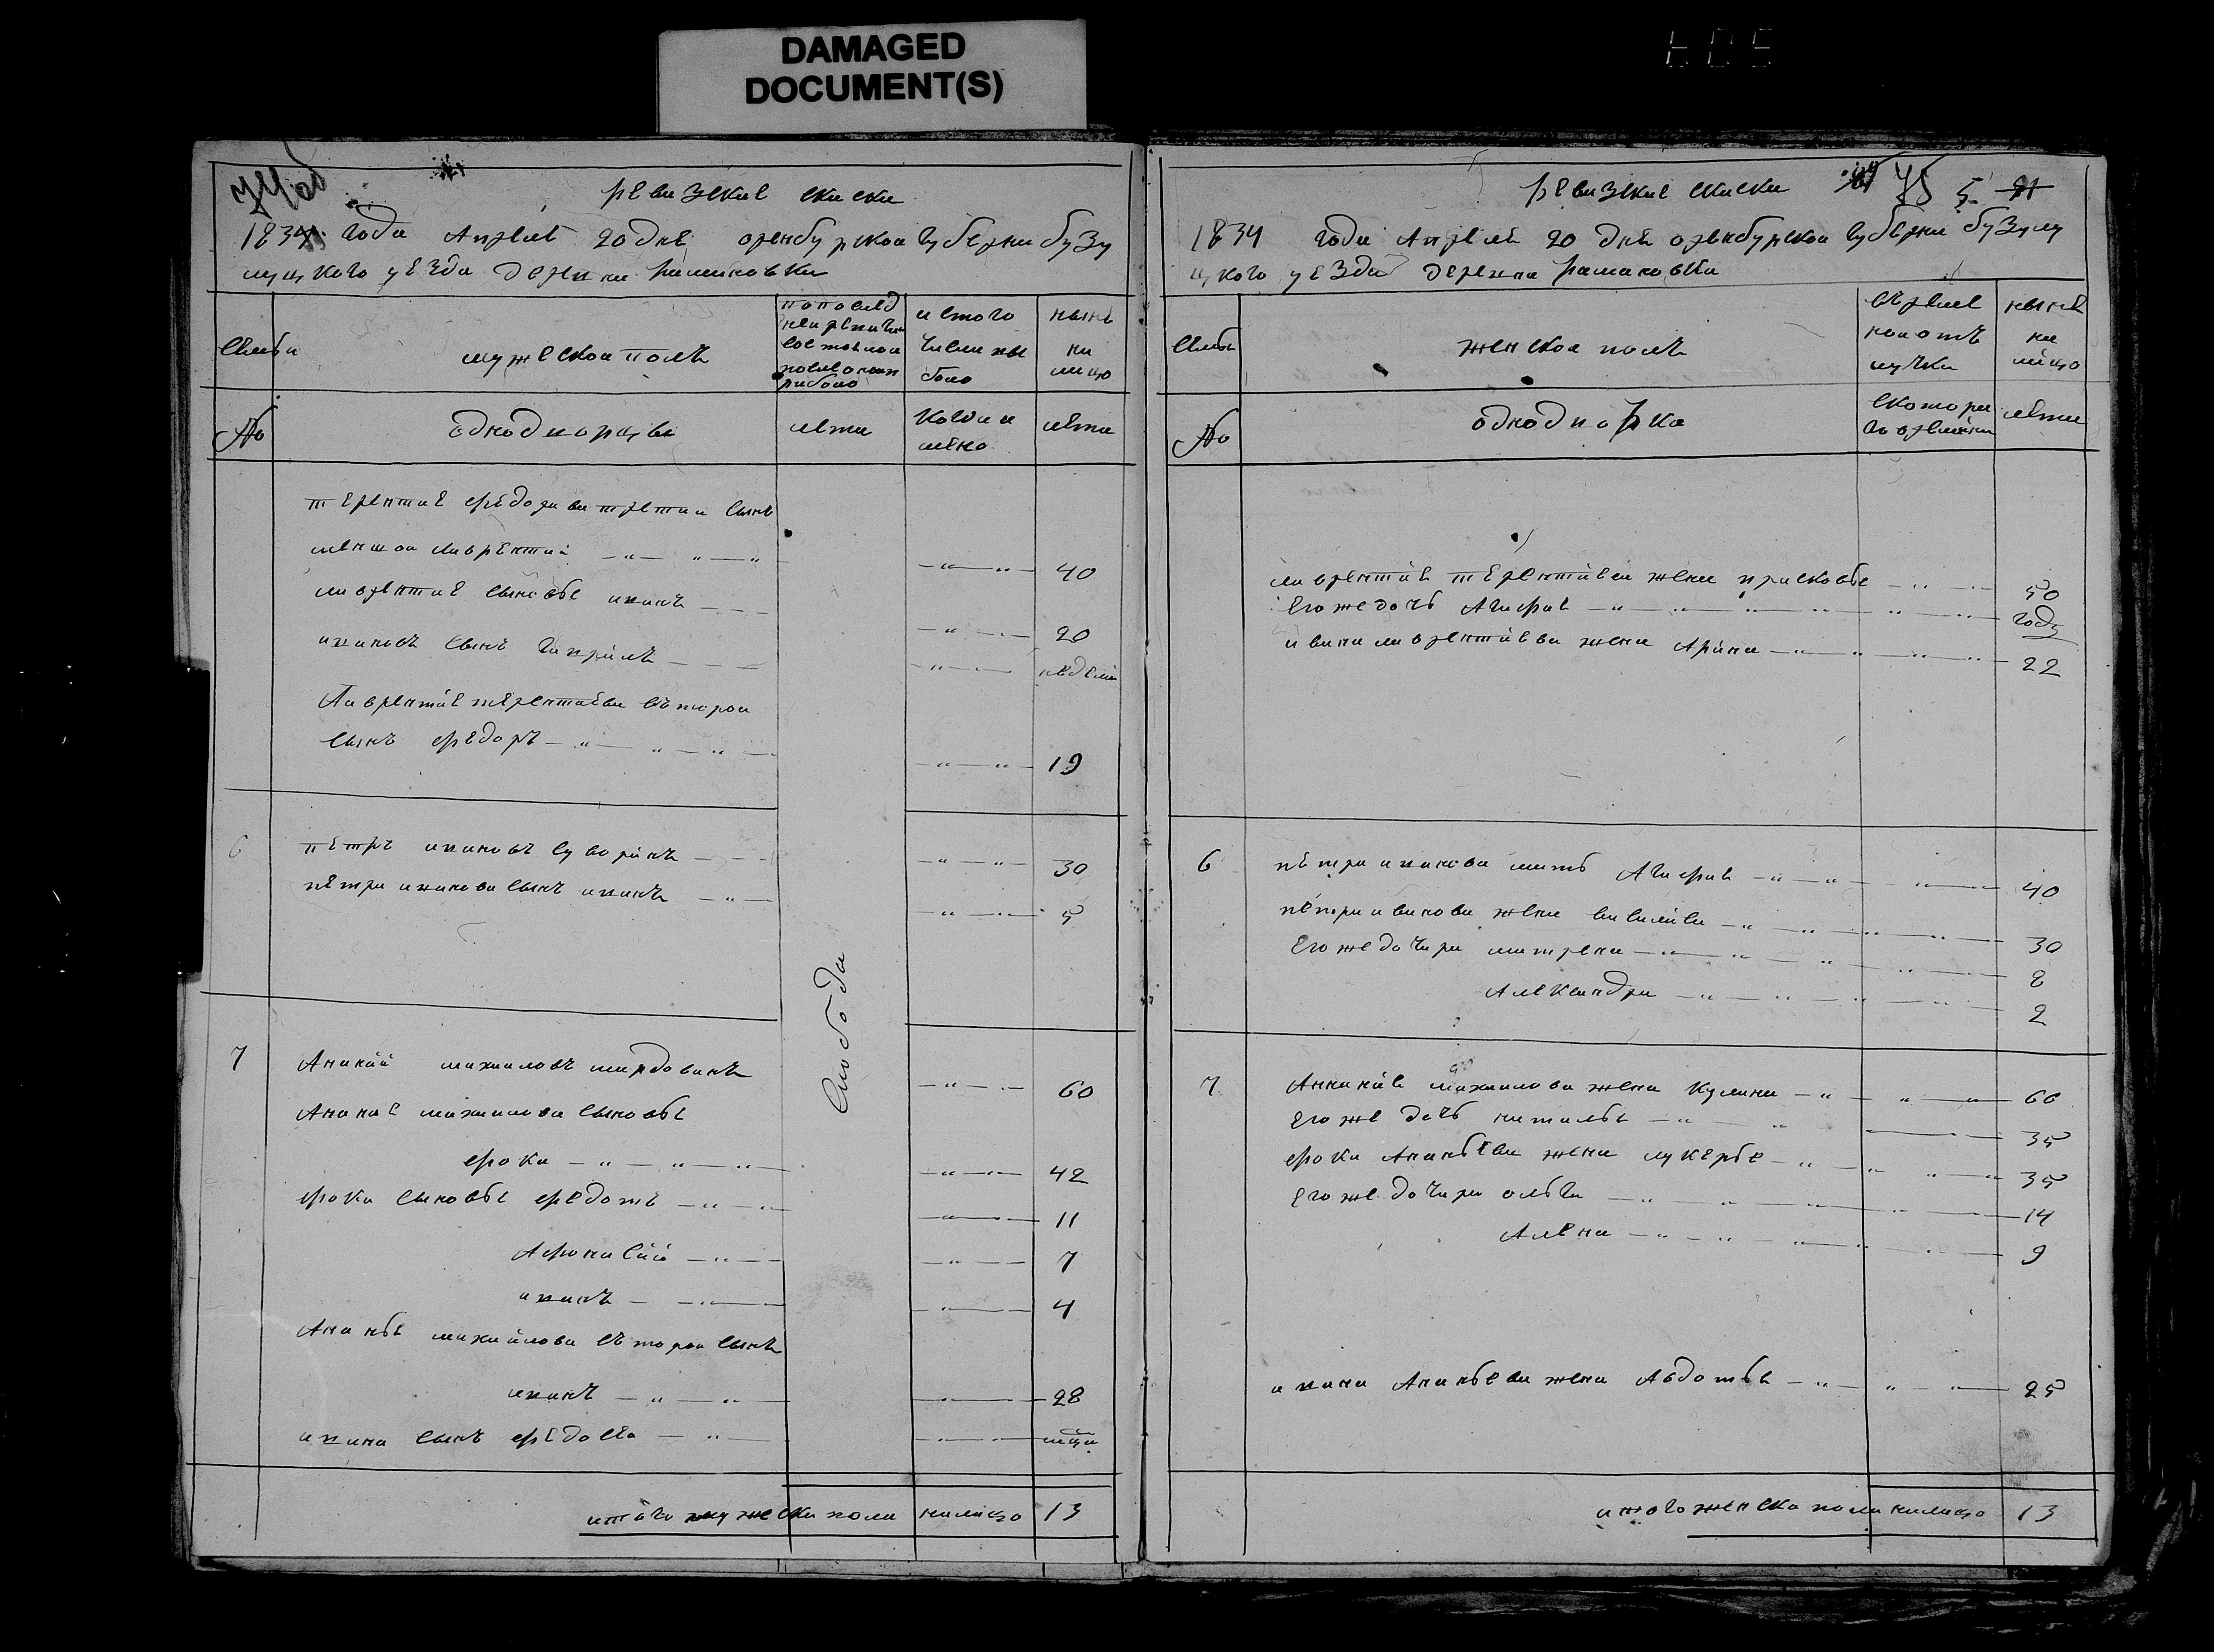 DAMAGED
DOCUMENT(S)
74об
ревизские скаски
1834 года Апреле 20 дне оренбурскоа губерни бузу
луцкого уезда деревни рамаковки
семьи
мужескоа полъ
итого
числа вы
было
ныне
на
лицо
№
однодворцы
лета
когда и
лено
лета
терентие федорава третии сынъ
меншои лаврентии 40
лаврентие сыновье иванъ 20
ивановъ сынъ гаврилъ недели
Лаврентие терентиева въторои
сынъ федоръ 19
6 петръ ивановъ суворинъ 30
петра иванова сынъ иванъ 5
слобода
7 Ананий михаиловъ мардовинъ 60
Анание михаилова сыновье
фока 42
фоки сыновье федотъ 11
Афонасий 7
иванъ 4
Ананье михайлова въторои сынъ
иванъ 28
ивана сынъ федосеи мцы
итого мужеска пола налицо 13
ревизские скаски 75 5 91
1834 года Апреле 20 дне оренбурскоа губерни бузулу
цкого уезда деревна рамаковки
семьи
женскоа полъ
въ време
наотъ
лучки
ныне
на
лицо
№
однодворка
с которы
го времени
лета
лаврентие терентиева жена прасковье 50
Его же дочь Агафие году
ивана лаврентиева жена Арина 22
6 петра иванова мать Агафие 40
петра иванова жена василиса 30
Его же дочери матрена 8
Александра 2
7 Ананние михаилова жена Кулина 60
Его же дочь наталье 35
фоки Ананьева жена лукерье 35
Его же дочери ольга 14
Алена 9
ивана Ананьева жена Авдотье 25
итого женска пола налицо 13